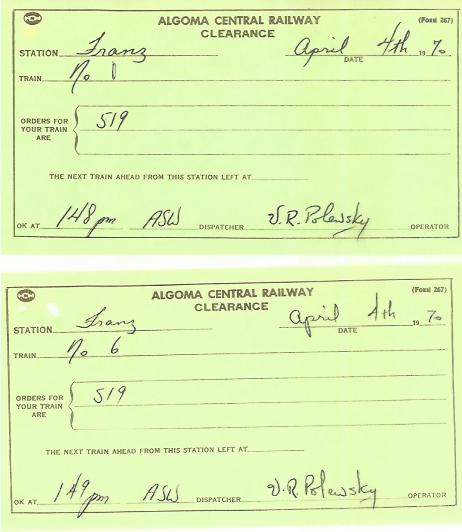 ALGOMA CENTRAL RAILWAY (Form 267)
CLEARANCE
STATION Franz April 4th 1970
DATE
TRAIN No 1
ORDERS FOR YOUR TRAIN ARE 519
THE NEXT TRAIN AHEAD FROM THIS STATION LEFT AT
OK AT 148 pm ASW DISPATCHER V.R. Polewsky OPERATOR
ALGOMA CENTRAL RAILWAY (Form 267)
CLEARANCE
STATION Franz April 4th 1970
DATE
TRAIN No 6
ORDERS FOR YOUR TRAIN ARE 519
THE NEXT TRAIN AHEAD FROM THIS STATION LEFT AT
OK AT 149 pm ASW DISPATCHER V.R. Polewsky OPERATOR